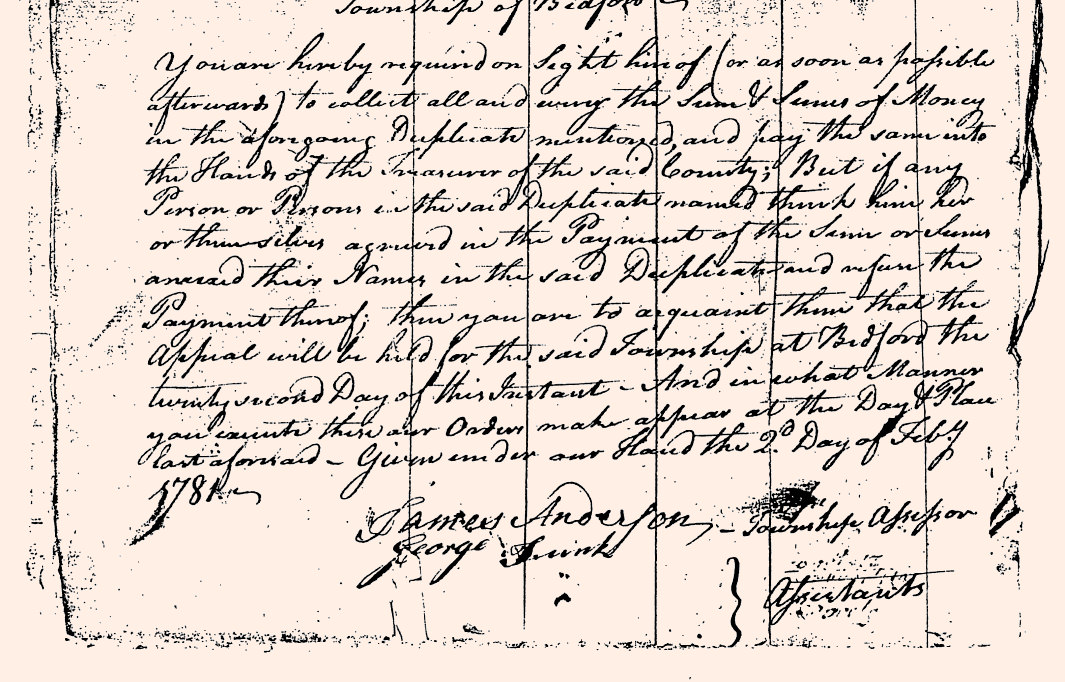 Township of Bedford
You are hereby required on Sight hereof (or as soon as possible
afterwards) to collect all and every the Sum & Sums of Money
in the aforegoing Duplicate mentioned, and pay the same into
the Hands of the Treasurer of the said County; But if any
Person or Persons in the said Duplicate named think him her
or themselves agrieved in the Payment of the Sum or Sums
annexed their Names in the said Duplicate and refuse the
Payment thereof; then you are to acquaint them that the
Appeal will be held for the said Township at Bedford the
twenty second Day of this Instant - And in what Manner
you execute these our Orders make appear at the Day & Place
last aforesaid - Given under our Hand the 2.d Day of Feby
1781
James Anderson, - Township Assessor
George Funk
} Assistants